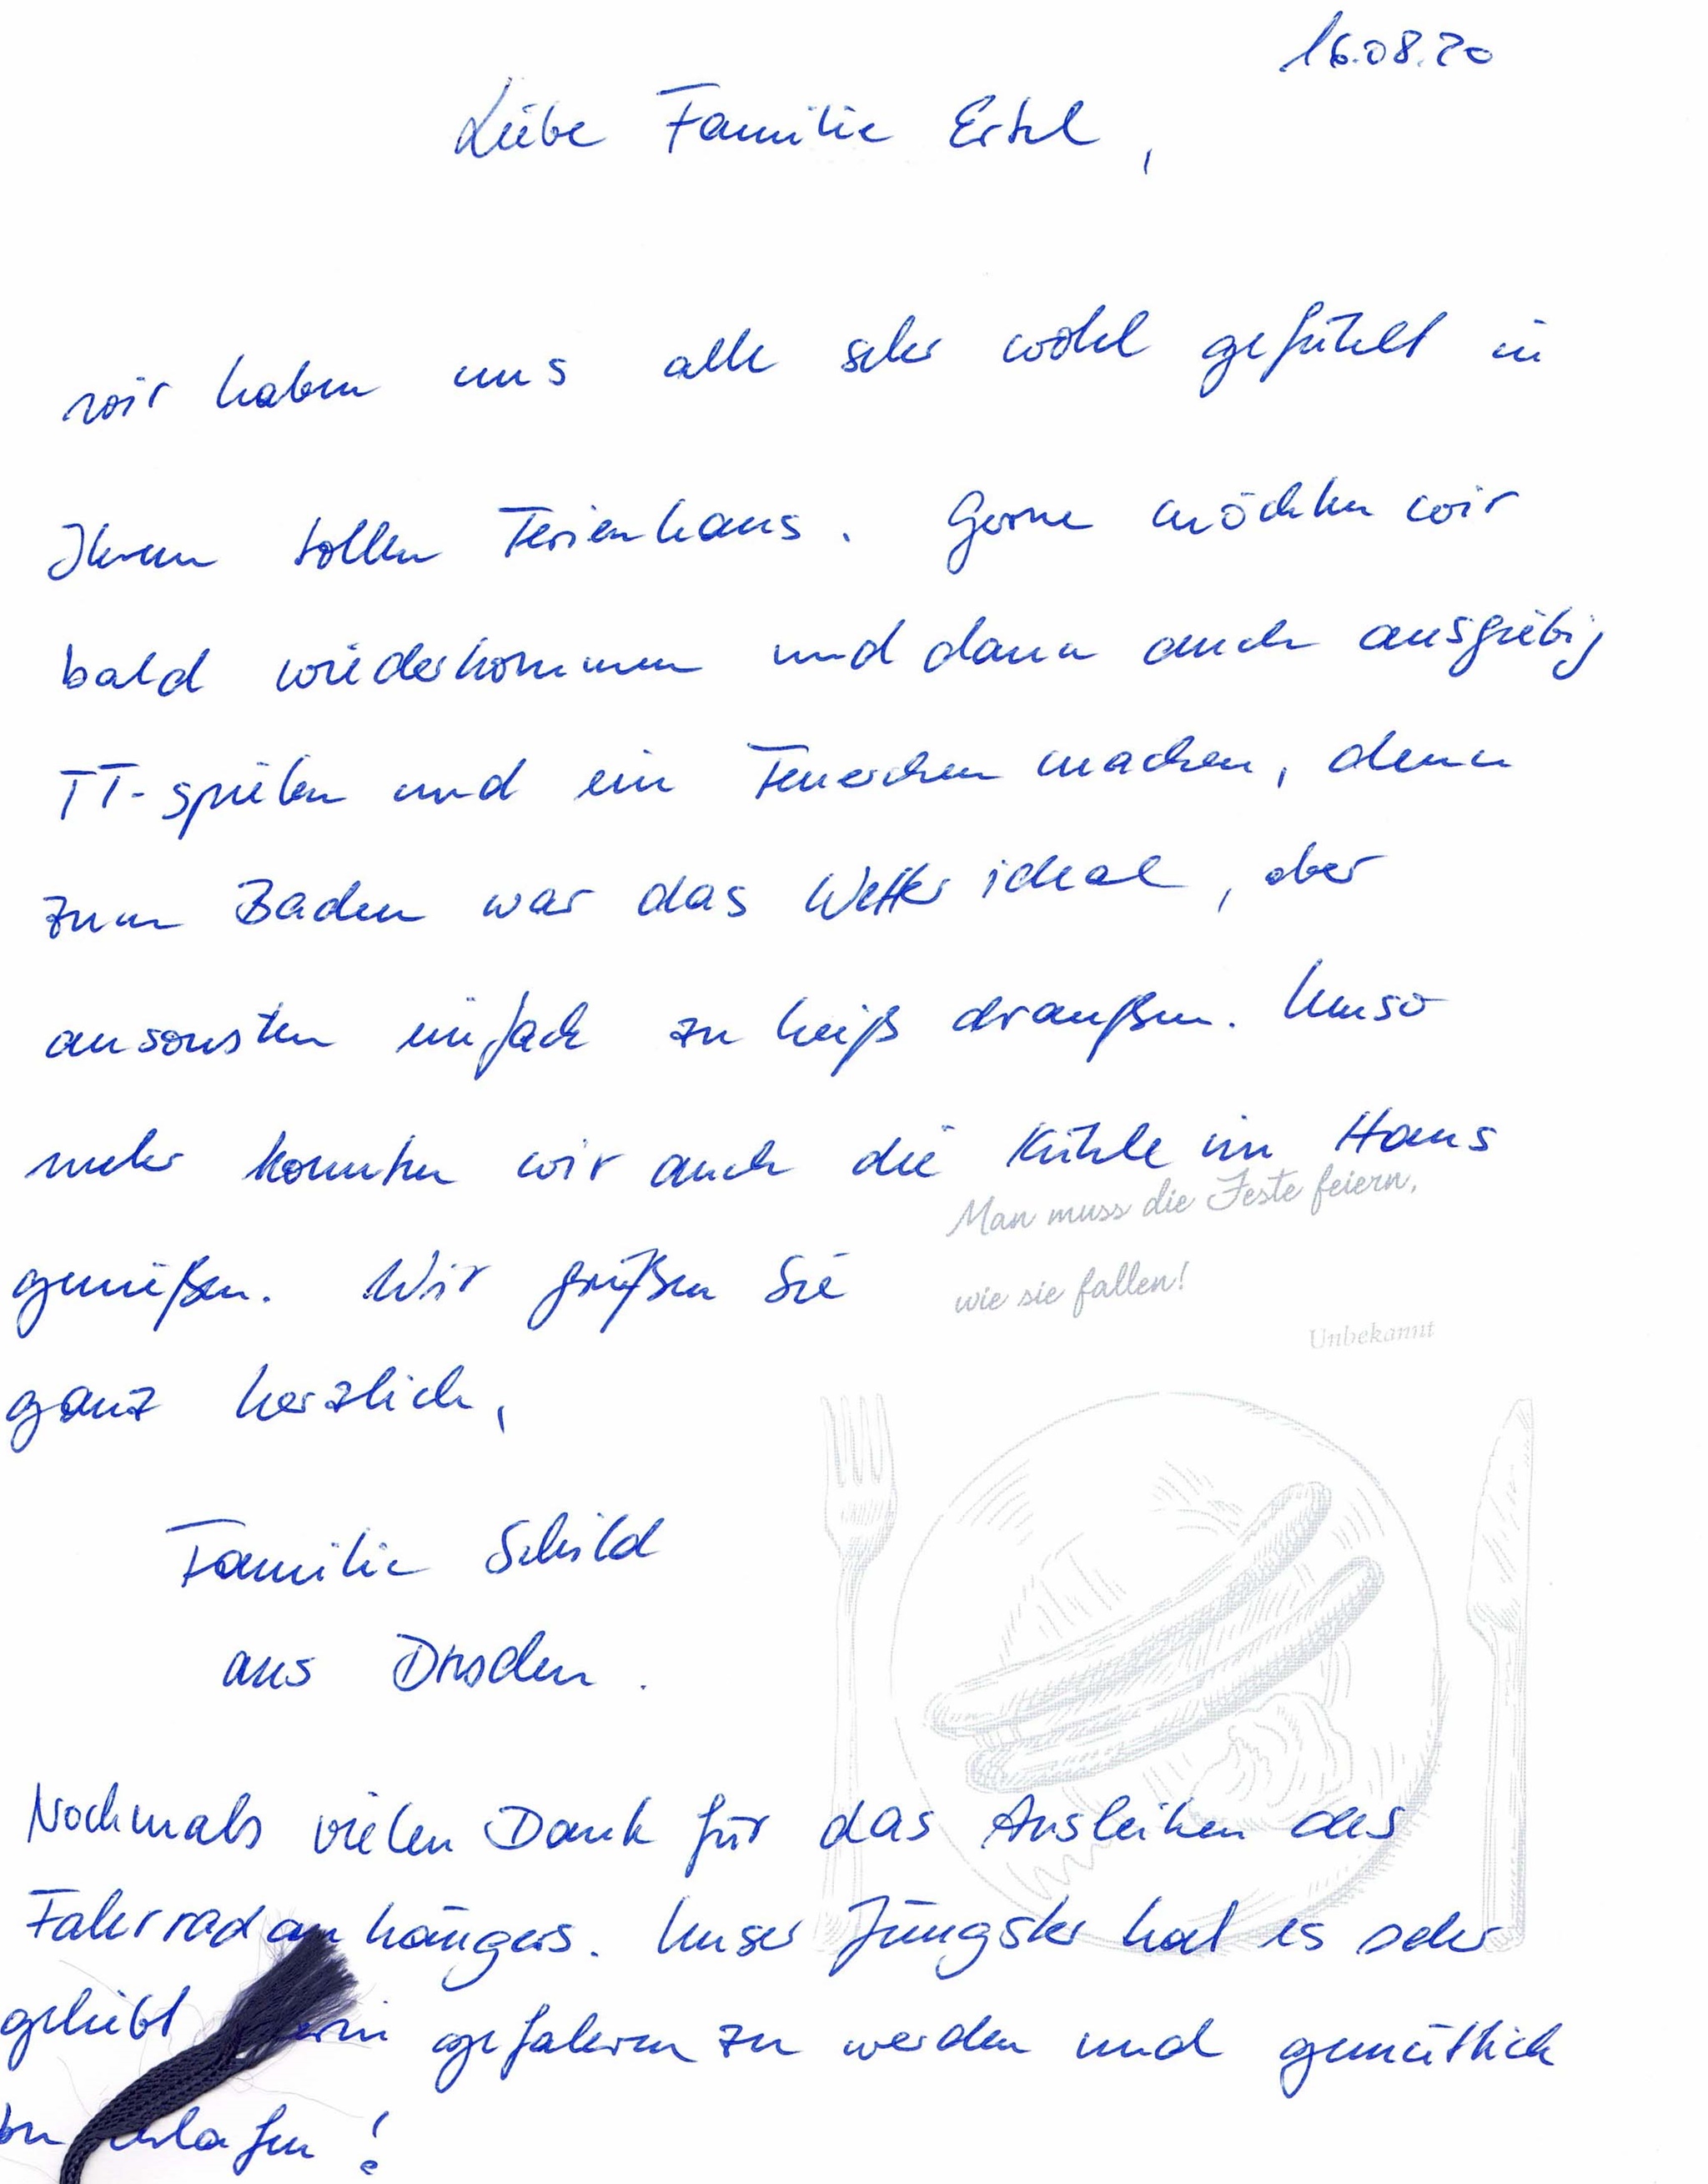 16.08.20
Liebe Familie Ertel,
wir haben uns alle sehr wohl gefühlt in
Ihrem tollen Ferienhaus. Gerne möchten wir
bald wiederkommen und dann auch ausgiebig
TT-spielen und ein Feuerchen machen, denn
zum Baden war das Wetter ideal, aber
ansonsten einfach zu heiß draußen. Umso
mehr konnten wir auch die Kühle im Haus
genießen. Wir grüßen Sie
Man muss die Feste feiern,
wie sie fallen!
Unbekannt
ganz herzlich,
Familie Schild
aus Dresden.
Nochmals vielen Dank für das Ausleihen des
Fahrradanhängers. Unser Jüngster hat es sehr
geliebt gefahren zu werden und gemütlich
!